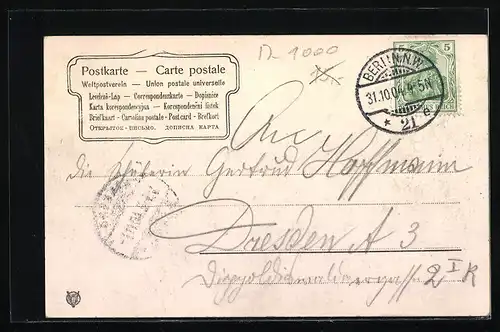 D-1000
Postkarte — Carte postale
Weltpostverein — Union postale universelle
Levelező-Lap — Correspondenzkarte — Dopisnice
Karta korespondencyjna — Korespondenční lístek
Briefkaart — Cartolina postale — Postcard — Brefkort
Открытое письмо. Дописна карта
5 5
REICH
BERLIN N.W.
31.10.04. 4-5N.
* 21 e.
An
die Schülerin Gertrud Hoffmann
Dresden A 3
Dippoldiswaldaergasse 2 I R